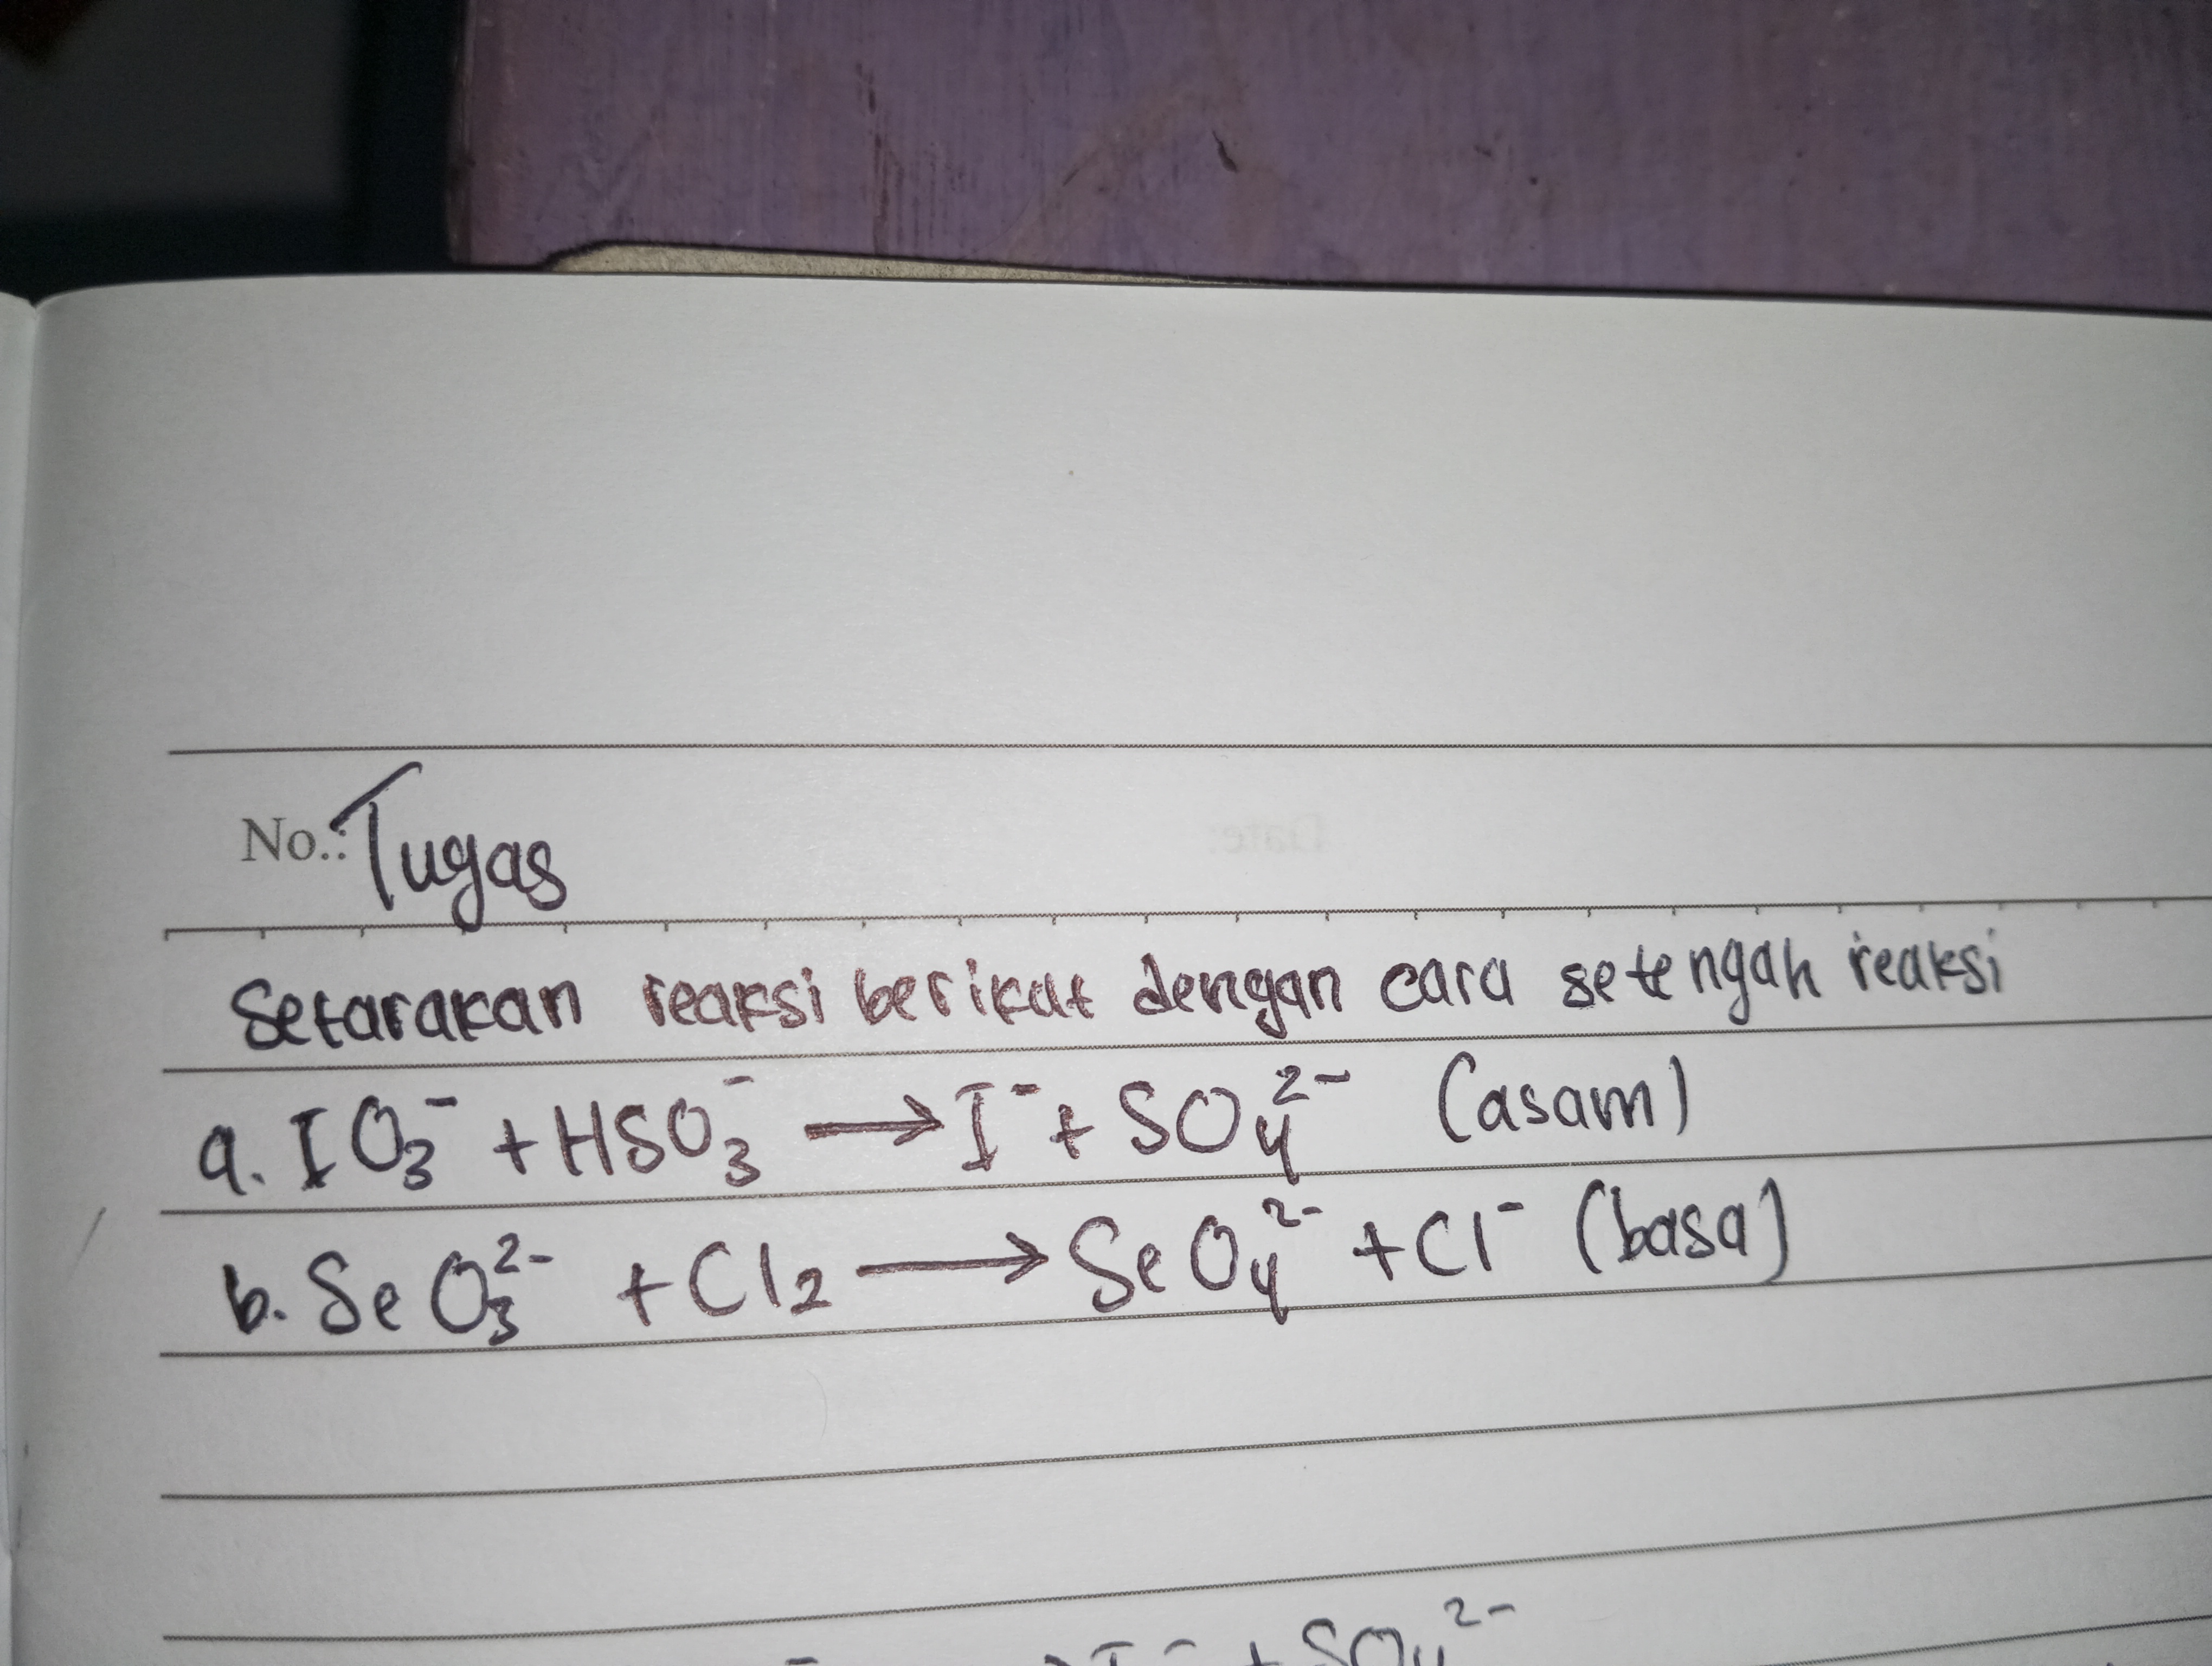 No.: Tugas
Setarakan reaksi berikut dengan cara setengah reaksi
a. IO₃⁻ + HSO₃⁻ → I⁻ + SO₄²⁻ (asam)
b. SeO₃²⁻ + Cl₂ → SeO₄²⁻ + Cl⁻ (basa)
I⁻ + SO₄²⁻